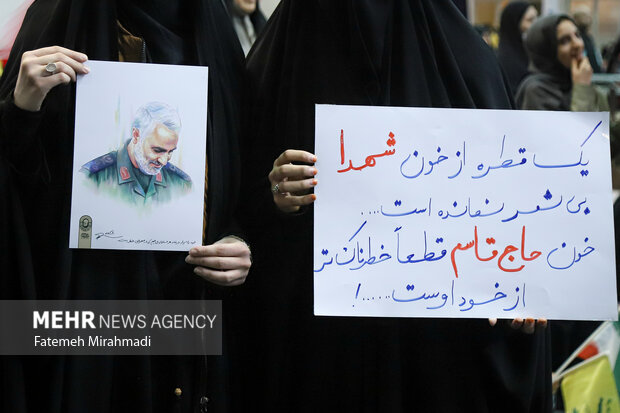 یک قطره از خون شهدا
بی ثمر نمانده است...
خون حاج قاسم قطعاً خطرناک تر
از خود اوست.....!
MEHR NEWS AGENCY
Fatemeh Mirahmadi